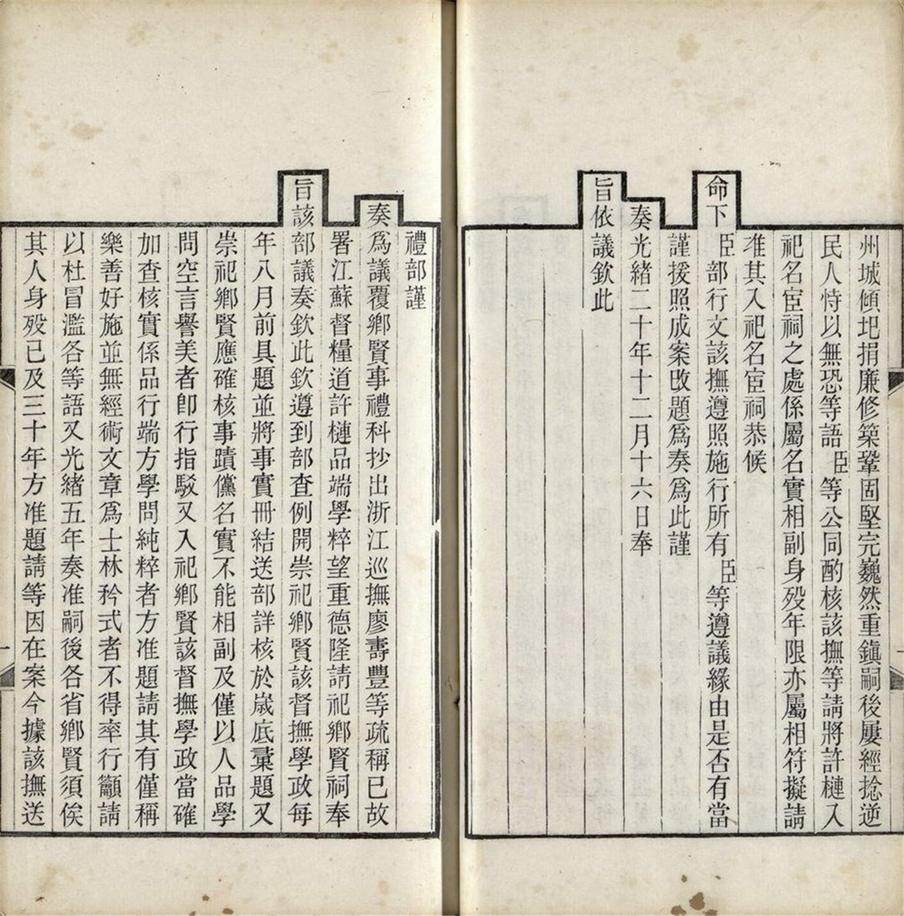 州城傾圯捐廉修築鞏固堅完巍然重鎮嗣後屢經捻逆
民人恃以無恐等語臣等公同酌核該撫等請將許槤入
祀名宦祠之處係屬名實相副身歿年限亦屬相符擬請
准其入祀名宦祠恭候
命下臣部行文該撫遵照施行所有臣等遵議緣由是否有當
謹援照成案改題為奏為此謹
奏光緒二十年十二月十六日奉
旨依議欽此
禮部謹
奏為議覆鄉賢事禮科抄出浙江巡撫廖壽豐等疏稱已故
署江蘇督糧道許槤品端學粹望重德隆請祀鄉賢祠奉
旨該部議奏欽此欽遵到部查例開崇祀鄉賢該督撫學政每
年八月前具題並將事實冊結送部詳核於歲底彚題又
崇祀鄉賢應確核事蹟儻名實不能相副及僅以人品學
問空言譽美者卽行指駁又入祀鄉賢該督撫學政當確
加查核實係品行端方學問純粹者方准題請其有僅稱
樂善好施並無經術文章為士林矜式者不得率行籲請
以杜冒濫各等語又光緒五年奏准嗣後各省鄉賢須俟
其人身歿已及三十年方准題請等因在案今據該撫送